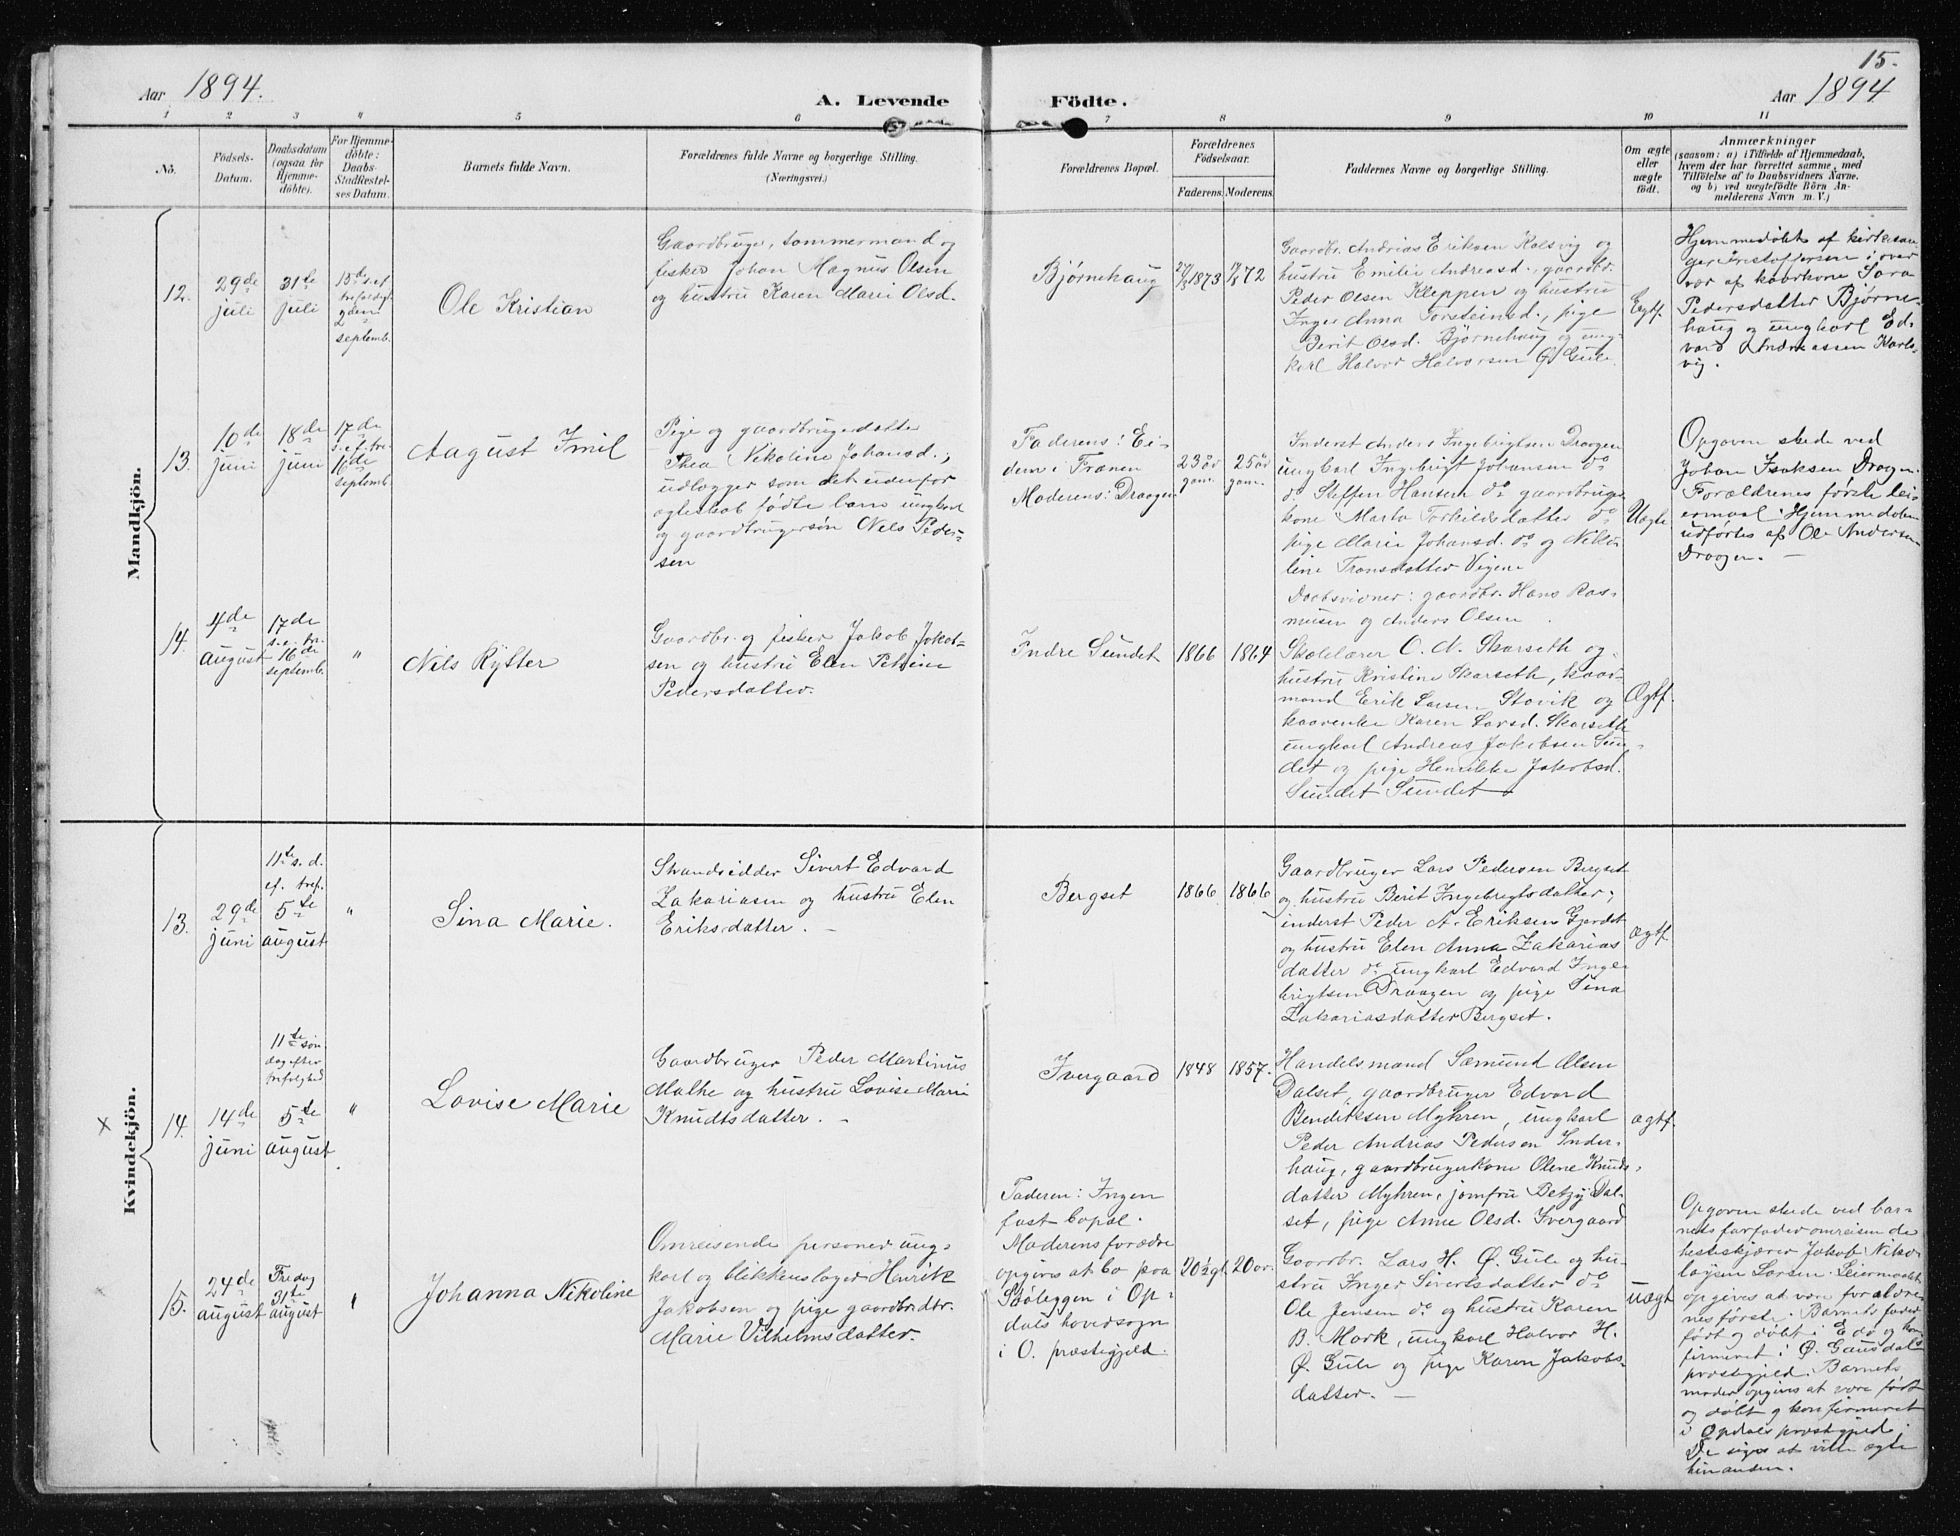 15.
Aar 1894.
A. Levende Födte.
Aar 1894
1 2 3 4 5 6 7 8 9 10 11
No.
Födsels-
Datum.
Daabsdatum
(ogsaa for
Hjemme-
döbte).
For Hjemme-
döbte:
Daabs-
Stadfæstel-
ses Datum.
Barnets fulde Navn.
Forældrenes fulde Navne og borgerlige Stilling.
(Næringsvei.)
Forældrenes Bopæl.
Forældrenes
Födselsaar.
Faderens. Moderens.
Faddernes Navne og borgerlige Stilling.
Om ægte
eller
uægte
födt.
Anmærkninger
(saasom: a) i Tilfælde af Hjemmedaab,
hvem der har forrettet samme, med
Tilföielse af to Daabsvidners Navne,
og b) ved uægtefödte Börn An-
melderens Navn m. V.)
Mandkjön.
12.
29de
juli
31te
juli
septemb.
Ole Kristian
Gaardbruger, tømmermand og
fisker Johan Magnus Olsen
og hustru Karen Marie Olsd.
Bjørnehaug
1873
72
Gaardbr. Andrias Eriksen Kalsvig og
hustru Emilie Andreasd., gaardbr.
Peder Olsen Kleppen og hustru
Inger Anna Torsteinsd., pige
Berit Olsd. Bjørnehaug og ung-
karl Halvor Halvorsen Ø. Gule.
Egtf.
Hjemmedøbt af kirkesan-
ger Kristoffersen i over
vær af kaarkone Sara
Pedersdatter Bjørne-
haug og ungkarl Ed-
vard Andreassen Karls-
vig.
13.
10de
juni
18de
juni
17de
s. ef. tre-
16de
septemb.
Aagust Emil
Pige og gaardbrugerdatter
Thea Nikoline Johansd.;
udlægger som det udenfor
ægteskab fødte barn ungkarl
og gaardbrugersøn Nels Peder-
sen
Faderens: Ei-
dem i Frænen
Moderens: Draagen
23 år
gam.
25 år
gam.
Inderst Anders Ingebrigtsen Draagen
ungkarl Ingebrigt Johansen do
do Steffen Hansen do gaardbruger
kone Marta Torkildsdatter do
pige Marie Johansd. do og Niko-
line Transdatter Vigene
Daabsvidner: gaardbr. Hans Ras-
musen og Anders Olsen.
Uægte
Opgaven skede ved
Johan Isaksen Draagen.
Forældrenes første lei-
ermaal. Hjemmedaaben
udførtes af Ole Andersen
Draagen. —
14.
4de
august
17de
s. e. tr.
16de
septemb.
"
Nils Rytter
Gaardbr. og fisker Jakob Jakob-
sen og hustru Elen Petrine
Pedersdatter.
Indre Sundet
1866
1864
Skolelærer O. N. Skarseth og
hustru Kristine Skarseth, kaar-
mand Erik Larsen Stavik og
kaarenke Karen Larsd. Skarseth
ungkarl Andreas Jakobsen Sun-
det og pige Henrikke Jakobsd.
Sundet Sundet
Ægtf.
Kvindekjön.
13.
29de
juni
11te s. d.
ef. tref.
5te
august
"
Sina Marie.
Strandsidder Sivert Edvard
Zakariasen og hustru Elen
Eriksdatter. —
Bergset
1866
1866
Gaardbruger Lars Pedersen Bergset
og hustru Berit Ingebrigtsdatter;
inderst Peder A. Eriksen Gjerdet
og hustru Elen Anna Zakarias
datter do ungkarl Edvard Inge-
brigtsen Draagen og pige Sina
Zakariasdatter Bergset.
ægtf
×
14.
14de
juni
11te søn
dag efter
trefoldighed
5te
august
"
Lovise Marie
Gaardbruger Peder Martinus
Malhe og hustru Lovise Marie
Knudtsdatter. —
Ivergaard
1848
1857.
Handelsmand Sæmund Olsen
Dalset, gaardbruger Edvard
Benditsen Myhren, ungkarl
Peder Andrias Pedersen Inder-
haug, gaardbrugerkone Olene Knuds-
datter Myhren, jomfru Betzy Dal-
set, pige Anne Olsd. Ivergaard
ægtf.
15.
24de
august
Fredag
31te
august
"
Johanna Nikoline
Omreisende personer ung-
karl og blikkenslager Henrik
Jakobsen og pige gaardbr.dtr.
Marie Vilhelmsdatter.
Faderen: Ingen
fast bopæl.
Moderens forældre
opgives at bo paa
Sæleggen i Op-
dals hovedsogn
i O. præstegjeld.
20½ gl.
20 aar.
Gaardbr. Lars H. Ø. Gule og hu-
stru Inger Sivertsdatter do
Ole Jensen do og hustru Karen
B. Mork, ungkarl Halvor H.
Ø. Gule og pige Karen Jakobs-
datter. —
uægt
Opgaven skede ved bar-
nets farfader omreisende
hesteskjærer Jakob Niko-
laysen Larsen. Leiermaalet
opgives at være forældre-
nes første. Barnets fader
født og døbt i Edø og kon-
firmeret i Ø. Gausdals
præstegjeld. Barnets
moder opgives at være født
og døbt og konfirmeret
i Opdals præstegjeld.
De siges at ville ægte
hinanden.